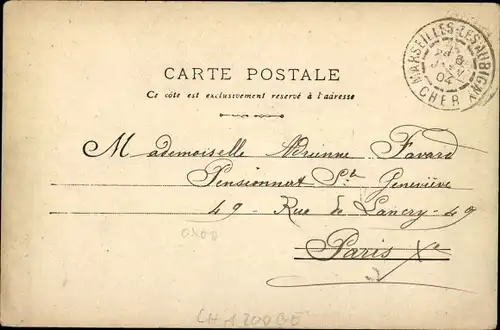 MARSEILLES-LES-AUBIGNY
8
JANV
04
CHER
CARTE POSTALE
Ce côté est exclusivement reservé à l'adresse
Mademoiselle Adrienne Favard
Pensionnat Ste Geneviève
49 - Rue de Lancry - 49
Paris Xe
CH1200BE